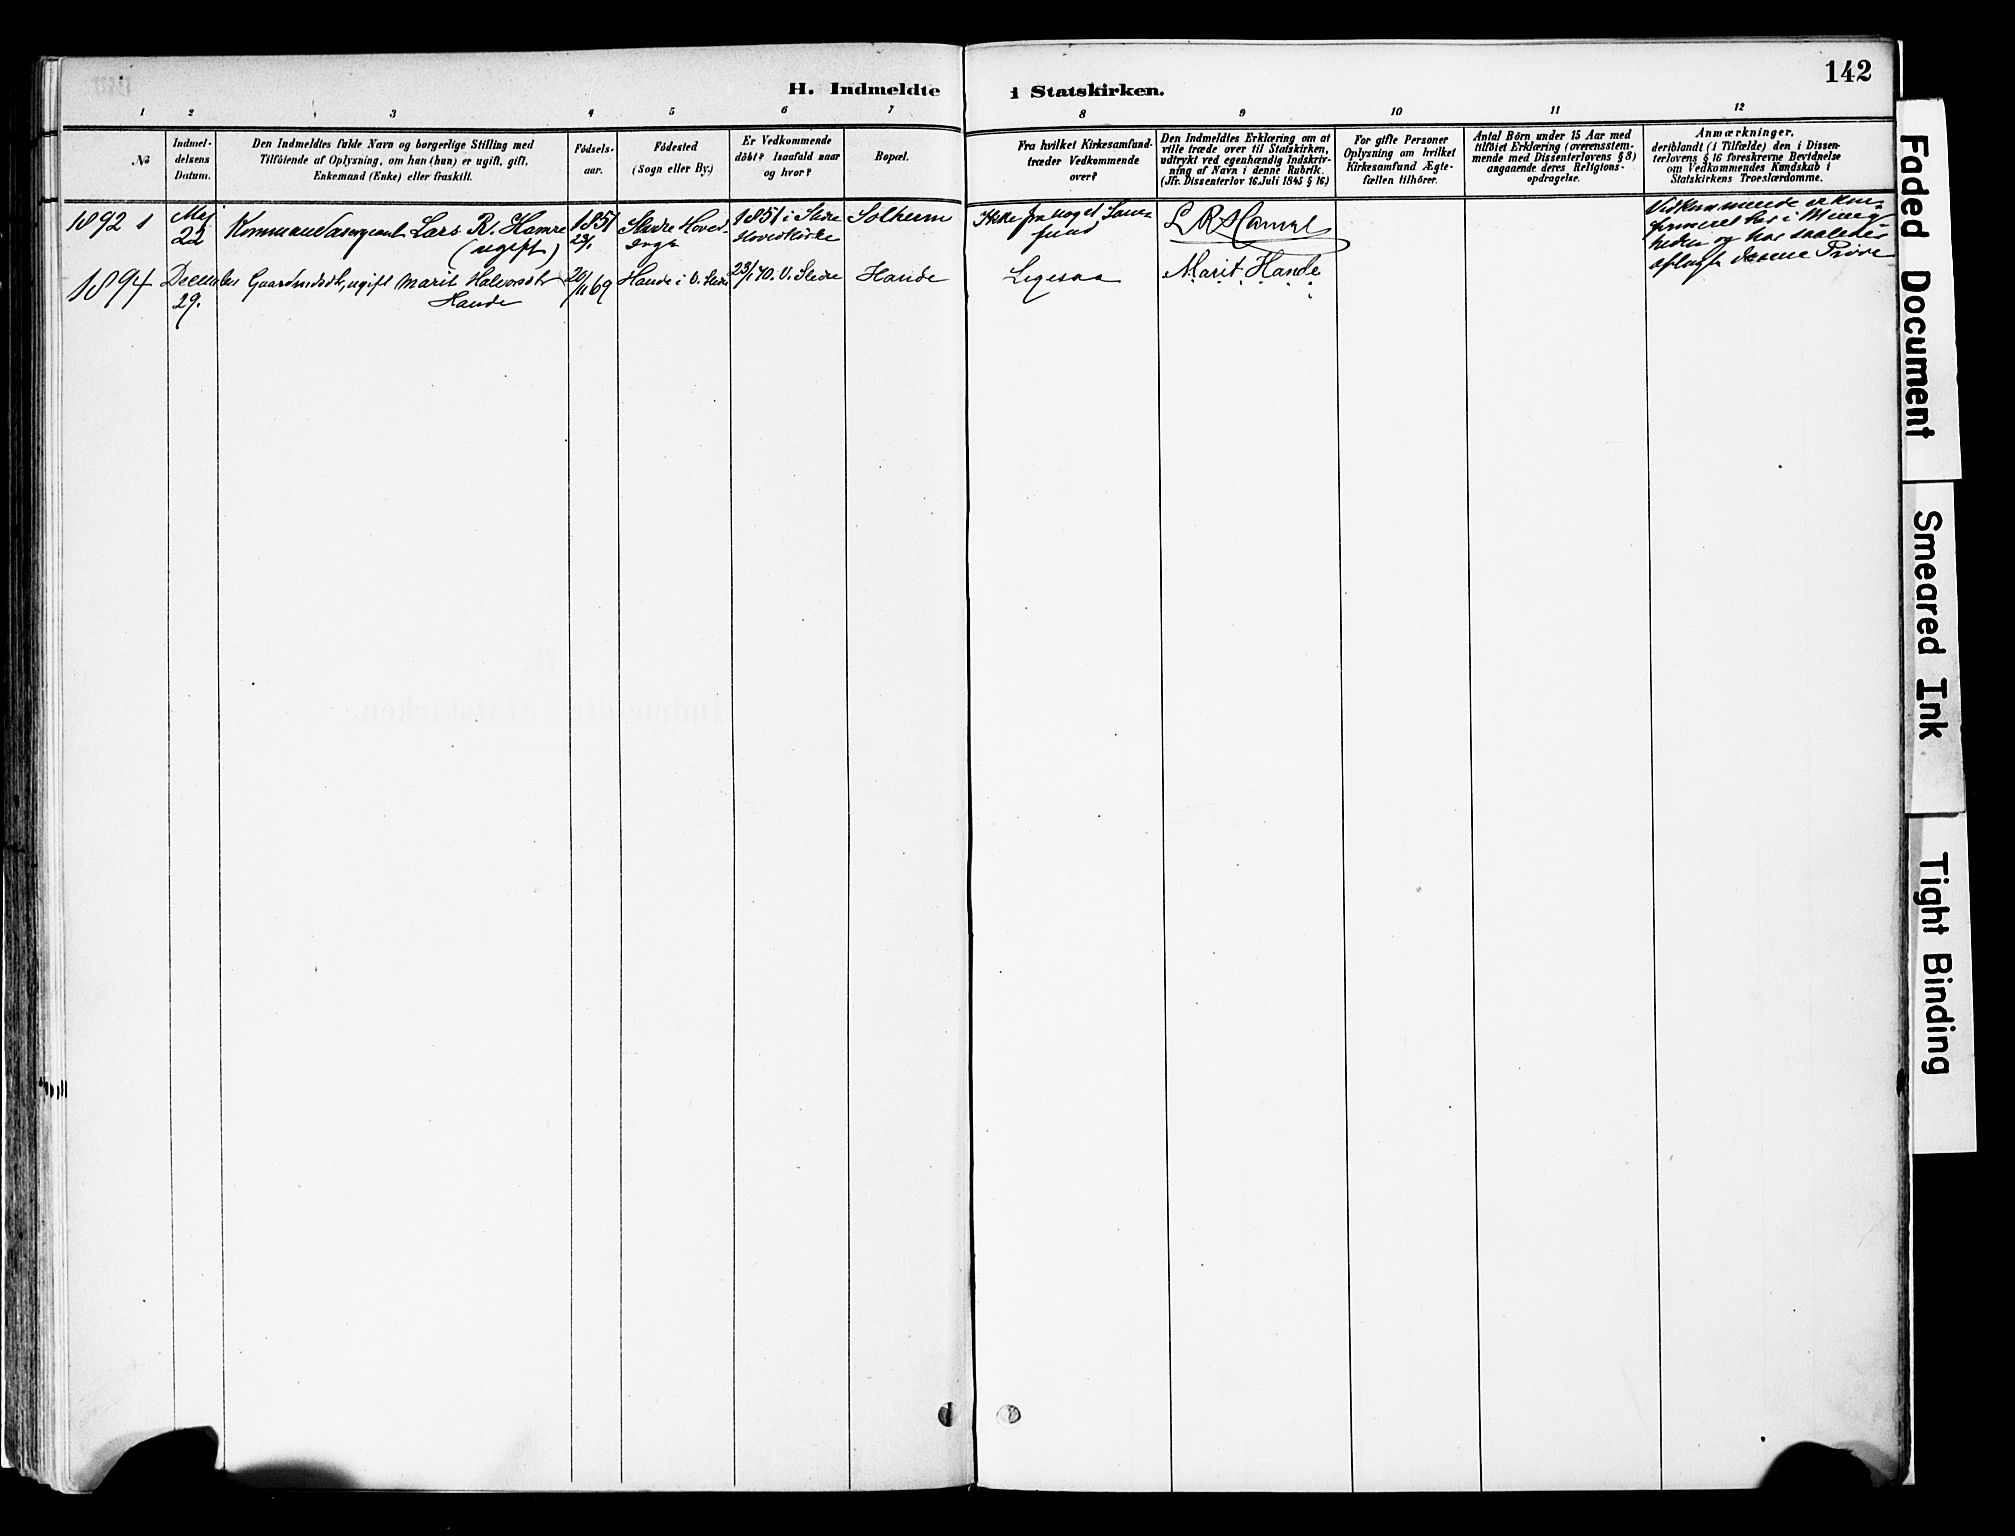 142
H. Indmeldte i Statskirken.
1 2 3 4 5 6 7 8 9 10 11 12
№
Indmel-
delsens
Datum.
Den Indmeldtes fulde Navn og borgerlige Stilling med
Tilföiende af Oplysning, om han (hun) er ugift, gift,
Enkemand (Enke) eller fraskilt.
Födsels-
aar.
Födested
(Sogn eller By.)
Er Vedkommende
döbt? Isaafald naar
og hvor?
Bopæl.
Fra hvilket Kirkesamfund
træder Vedkommende
over?
Den Indmeldtes Erklæring om at
ville træde over til Statskirken,
udtrykt ved egenhændig Indskriv-
ning af Navn i denne Rubrik.
(Jfr. Dissenterlov 16. Juli 1845 § 16)
For gifte Personer
Oplysning om hvilket
Kirkesamfund Ægte-
fællen tilhörer.
Antal Börn under 15 Aar med
tilföiet Erklæring (overensstem-
mende med Dissenterlovens § 8)
angaaende deres Religions-
opdragelse.
Anmærkninger,
deriblandt (i Tilfælde) den i Dissen-
terlovens § 16 foreskrevne Bevidnelse
om Vedkommendes Kundskab i
Statskirkens Troeslærdomme.
1892 1
Maj
22
Kommandersergeant Lars R. Hamre
(ugift)
1851
23/1
Slidre Hoved-
sogn
1851 i Slidre
Hovedkirke
Solheim
Ikke fra noget Sam-
fund
L R Hamre
Vedkommende er kon-
firmeret her i Menig-
heden og har saaledes
aflagt denne Prøve
1894
December
29.
Gaardmdsdtr, ugift Marit Halvorsdtr
Hande
20/11 69
Hande i V. Slidre
23/1 70. V. Slidre
Hande
Ligesaa
Marit Hande
Faded Document
Smeared Ink
Tight Binding